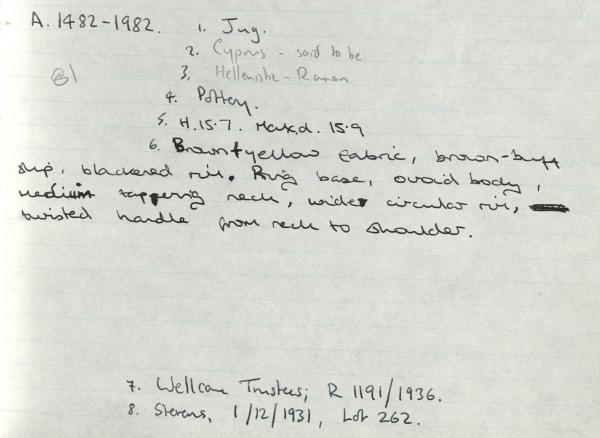 A. 1482-1982. 1. Jug.
2. Cyprus - said to be
81
3. Hellenistic - Roman
4. Pottery.
5. H. 15.7. Max.d. 15.9
6. Brown + yellow fabric, brown-buff
slip, blackened rim. Ring base, ovoid body,
medium tapering neck, wide circular rim,
twisted handle from neck to shoulder.
7. Wellcome Trustees; R 1191/1936.
8. Stevens, 1/12/1931, Lot 262.